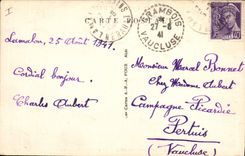 I
CARTE
GRAMBOIS
27-8
41
VAUCLUSE
Lamalou, 25 Août 1941.
Cordial bonjour.
Charles Aubert
Monsieur Marcel Bonnet
Chez Madame Aubert
Campagne Picardie
Pertuis
(Vaucluse)